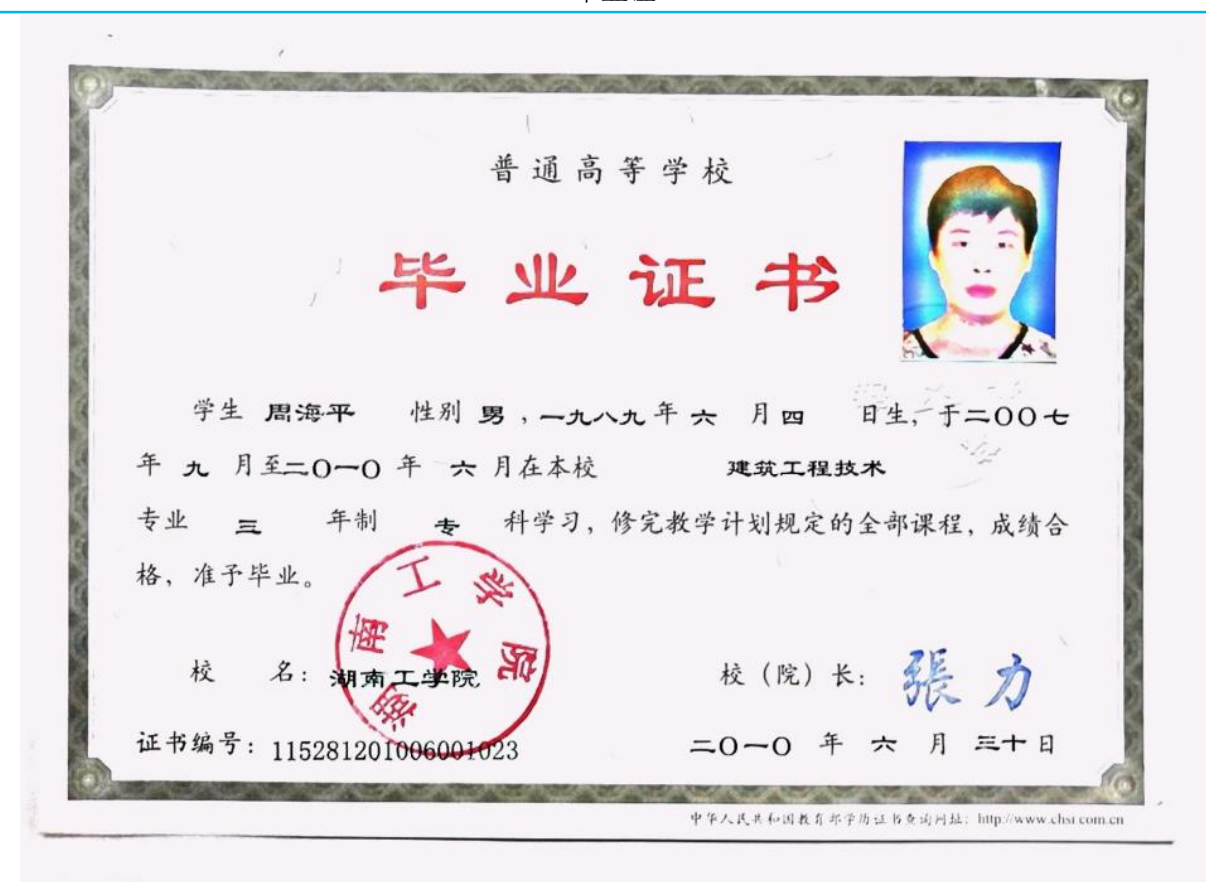 普通高等学校
毕业证书
学生 周海平 性别 男 , 一九八九 年 六 月 四 日生, 于二〇〇七
年 九 月至二〇一〇 年 六 月在本校 建筑工程技术
专业 三 年制 专 科学习, 修完教学计划规定的全部课程, 成绩合
格, 准予毕业。
湖南工学院
校 名: 湖南工学院 校(院)长: 張力
证书编号: 115281201006001023 二〇一〇 年 六 月 三十 日
中华人民共和国教育部学历证书查询网址: http://www.chsi.com.cn